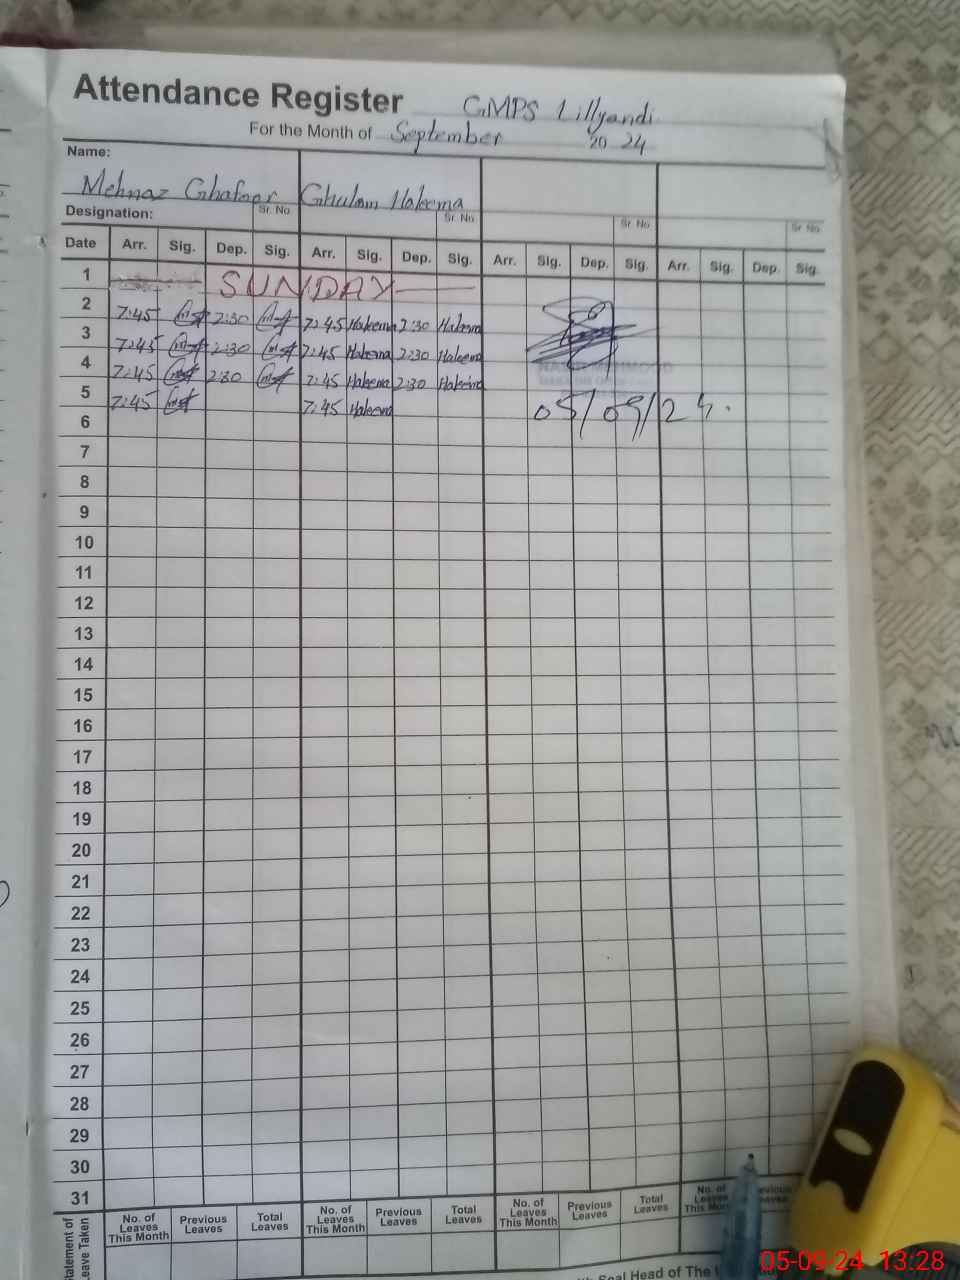 Attendance Register GMPS Lillyandi
For the Month of September 2024
Name:
Mehnaz Ghafoor Ghulam Hakema
Designation: Sr. No Sr. No Sr. No Sr. No
Date Arr. Sig. Dep. Sig. Arr. Sig. Dep. Sig. Arr. Sig. Dep. Sig. Arr. Sig. Dep. Sig.
1 SUNDAY
2 7:45 2:30 7:45 Hakema 2:30 Hakema
3 7:45 2:30 7:45 Hakema 2:30 Hakema
4 7:45 2:30 7:45 Hakema 2:30 Hakema
5 7:45 7:45 Hakema 05/09/24.
6
7
8
9
10
11
12
13
14
15
16
17
18
19
20
21
22
23
24
25
26
27
28
29
30
31
No. of Leaves This Month Previous Leaves Total Leaves No. of Leaves This Month Previous Leaves Total Leaves No. of Leaves This Month Previous Leaves Total Leaves No. of Leaves
Seal Head of The
05-09-24 13:28